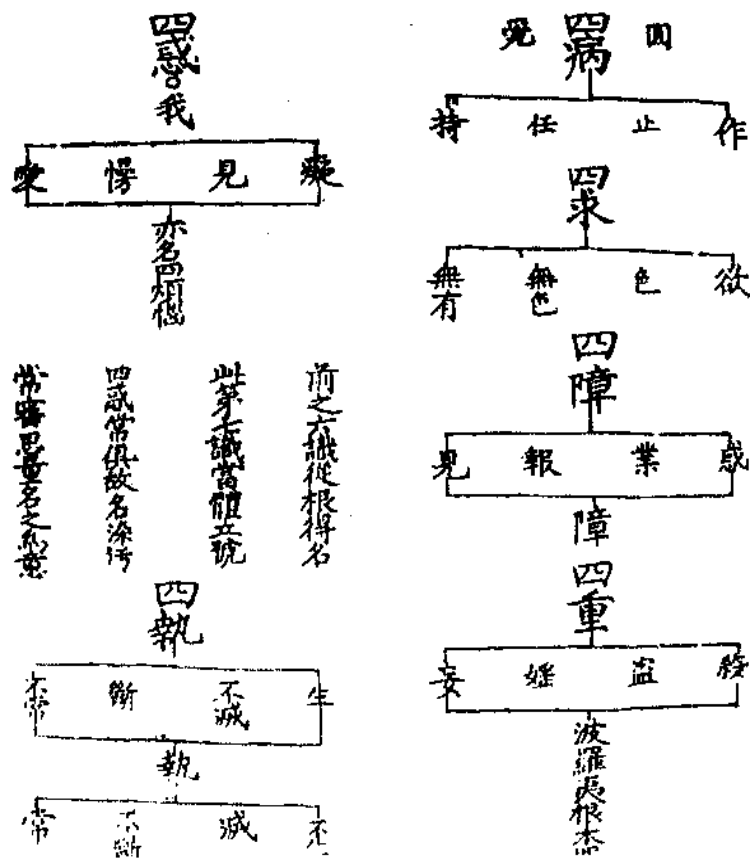 圓覺
四病
作 止 任 持
四求
欲 色 無色 無有
四障
惑 業 報 見
障
四重
殺 盜 婬 妄
波羅夷根本
四惑
我
癡 見 慢 愛
亦名四煩惱
前之六識從根得名
此第七識當體立號
四惑常俱故名染污
常審思量名之為意
四執
生 不滅 斷 不常
執
滅 不斷 常